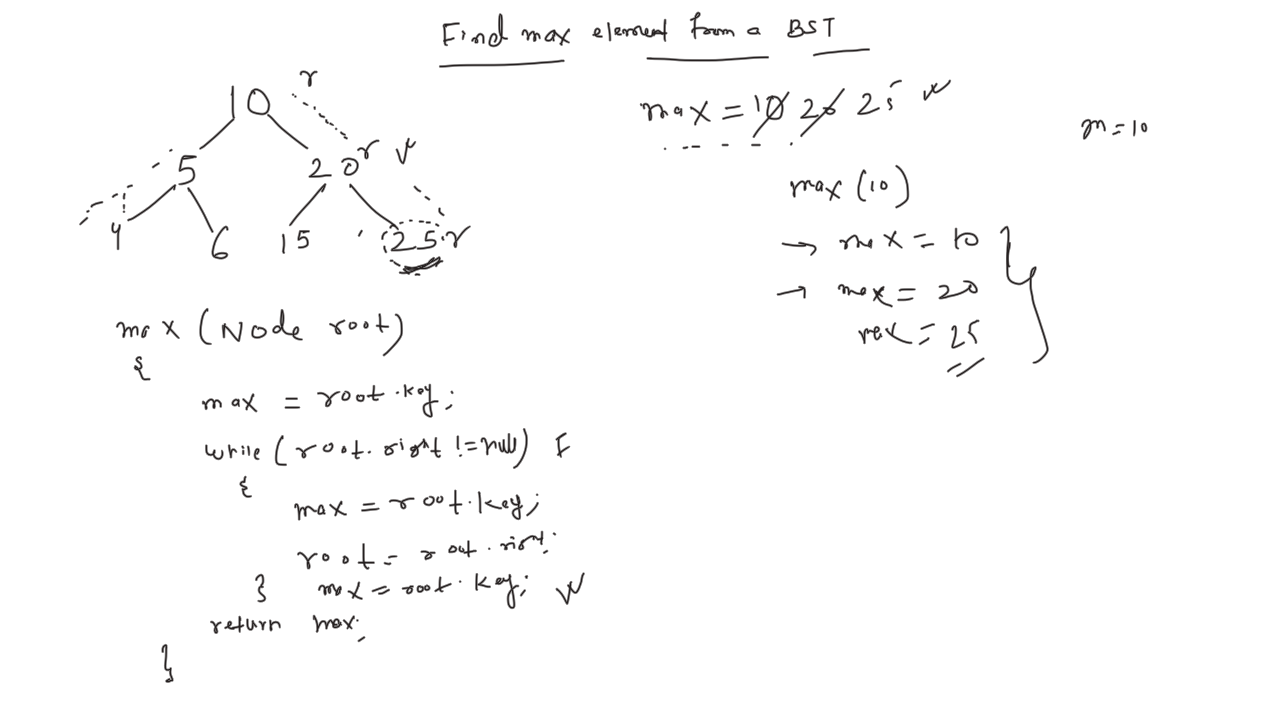 Find max element from a BST
r
10
max = 10 20 25
m = 10
5
20 r
max (10)
4
6
15
25 r
→ max = 10
→ max = 20
max = 25
max (Node root)
{
max = root.key;
while (root.right != null) F
{
max = root.key;
root = root.right;
} max = root.key;
return max;
}